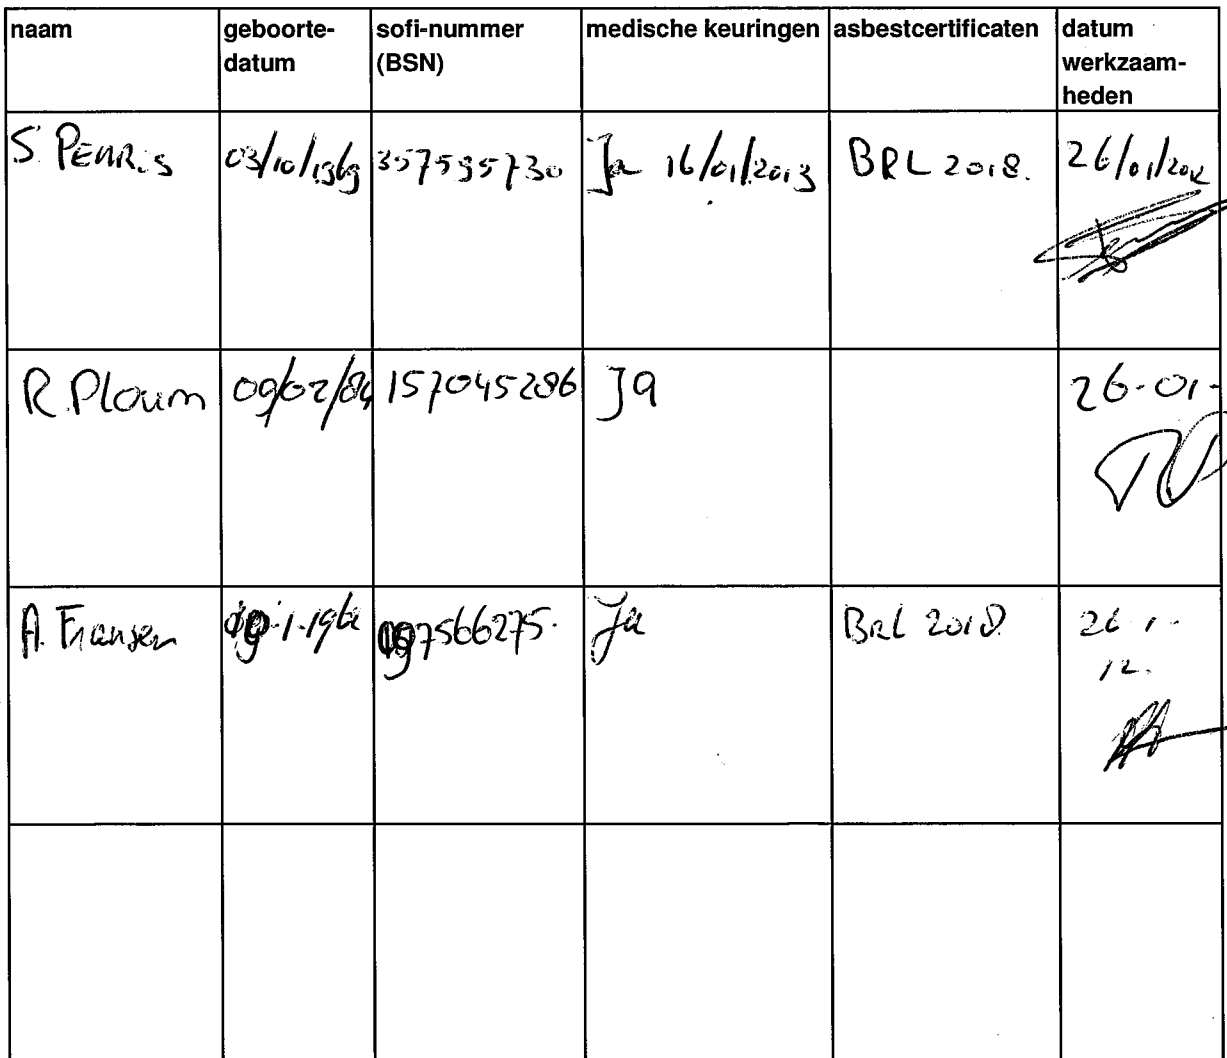 naam geboorte- sofi-nummer medische keuringen asbestcertificaten datum
datum (BSN) werkzaam-
heden
S. Penris 03/10/1969 357595730 Ja 16/01/2013 BRL 2018. 26/01/2012
R. Ploum 09/02/84 157045286 Ja 26-01-
A. Fransen 1-196 7566275. Ja BRL 2018 26-1-
12.